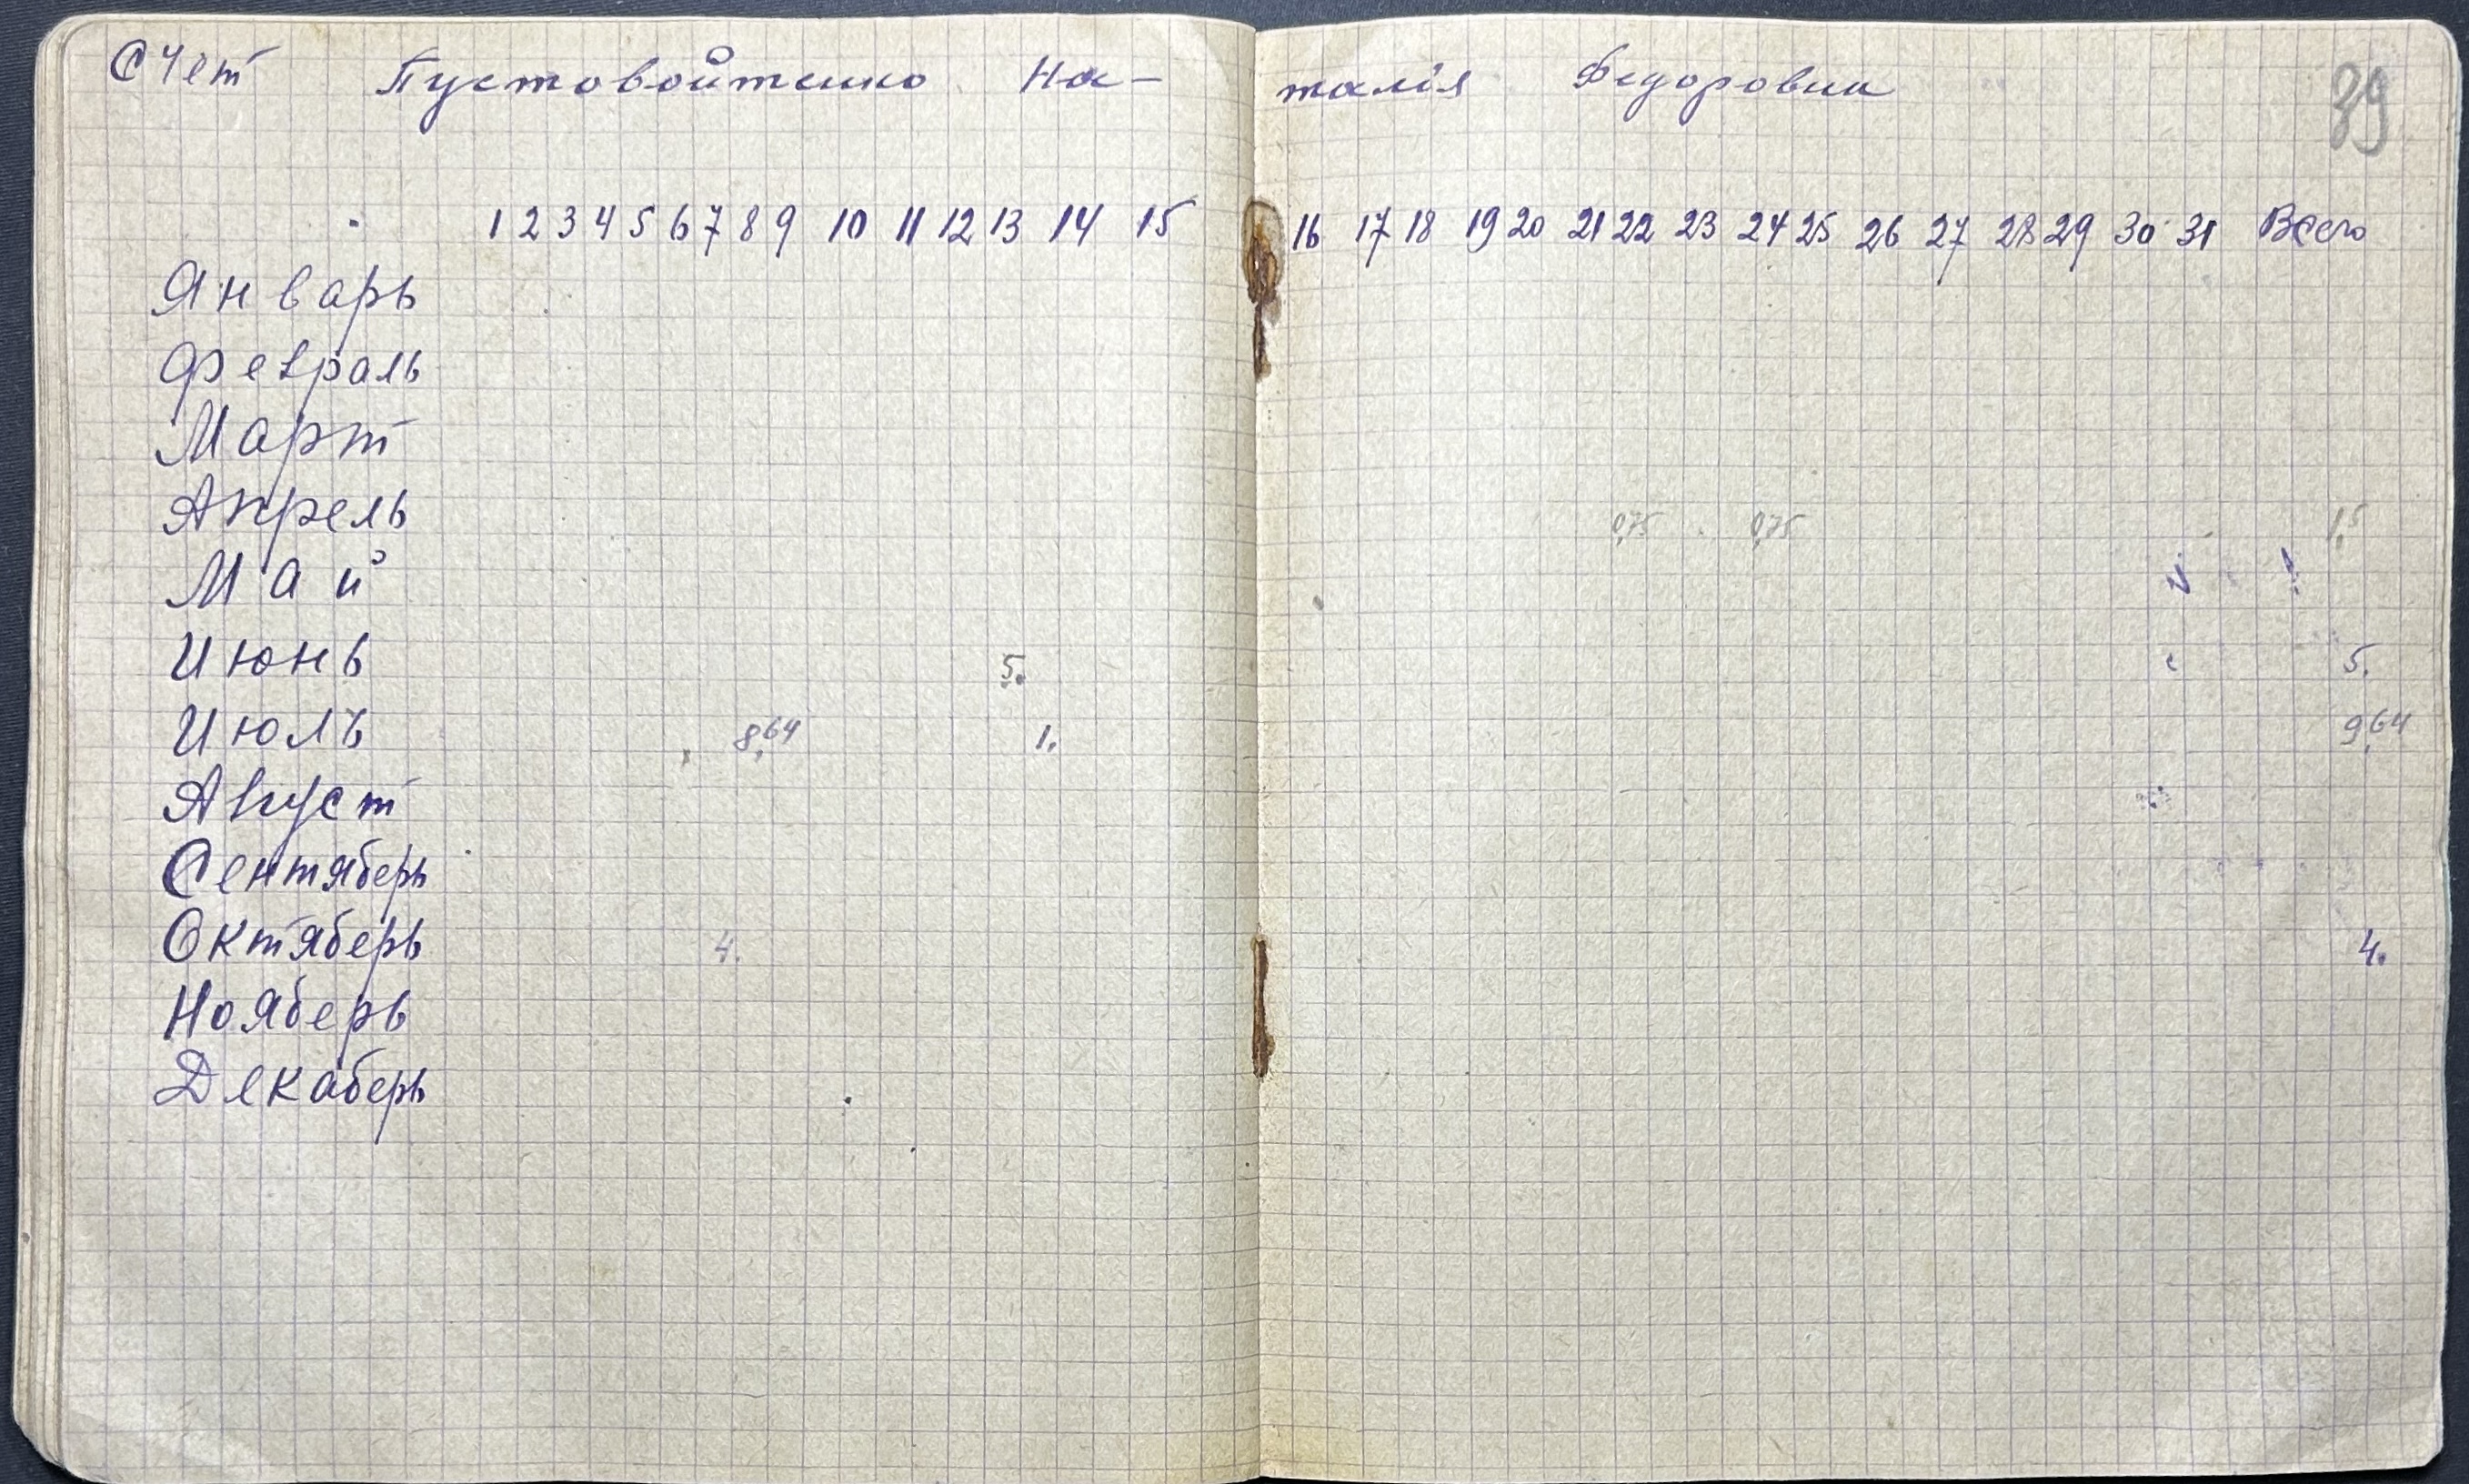 Счет Пустовойтенко На- талія Федоровна 39
1 2 3 4 5 6 7 8 9 10 11 12 13 14 15 16 17 18 19 20 21 22 23 24 25 26 27 28 29 30 31 Всего
Январь
Февраль
Март
Апрель 0,75 0,75 1,5
Май
Июнь 5. 5.
Июль 8,64 1. 9,64
Август
Сентяберь
Октяберь 4. 4.
Нояберь
Декаберь